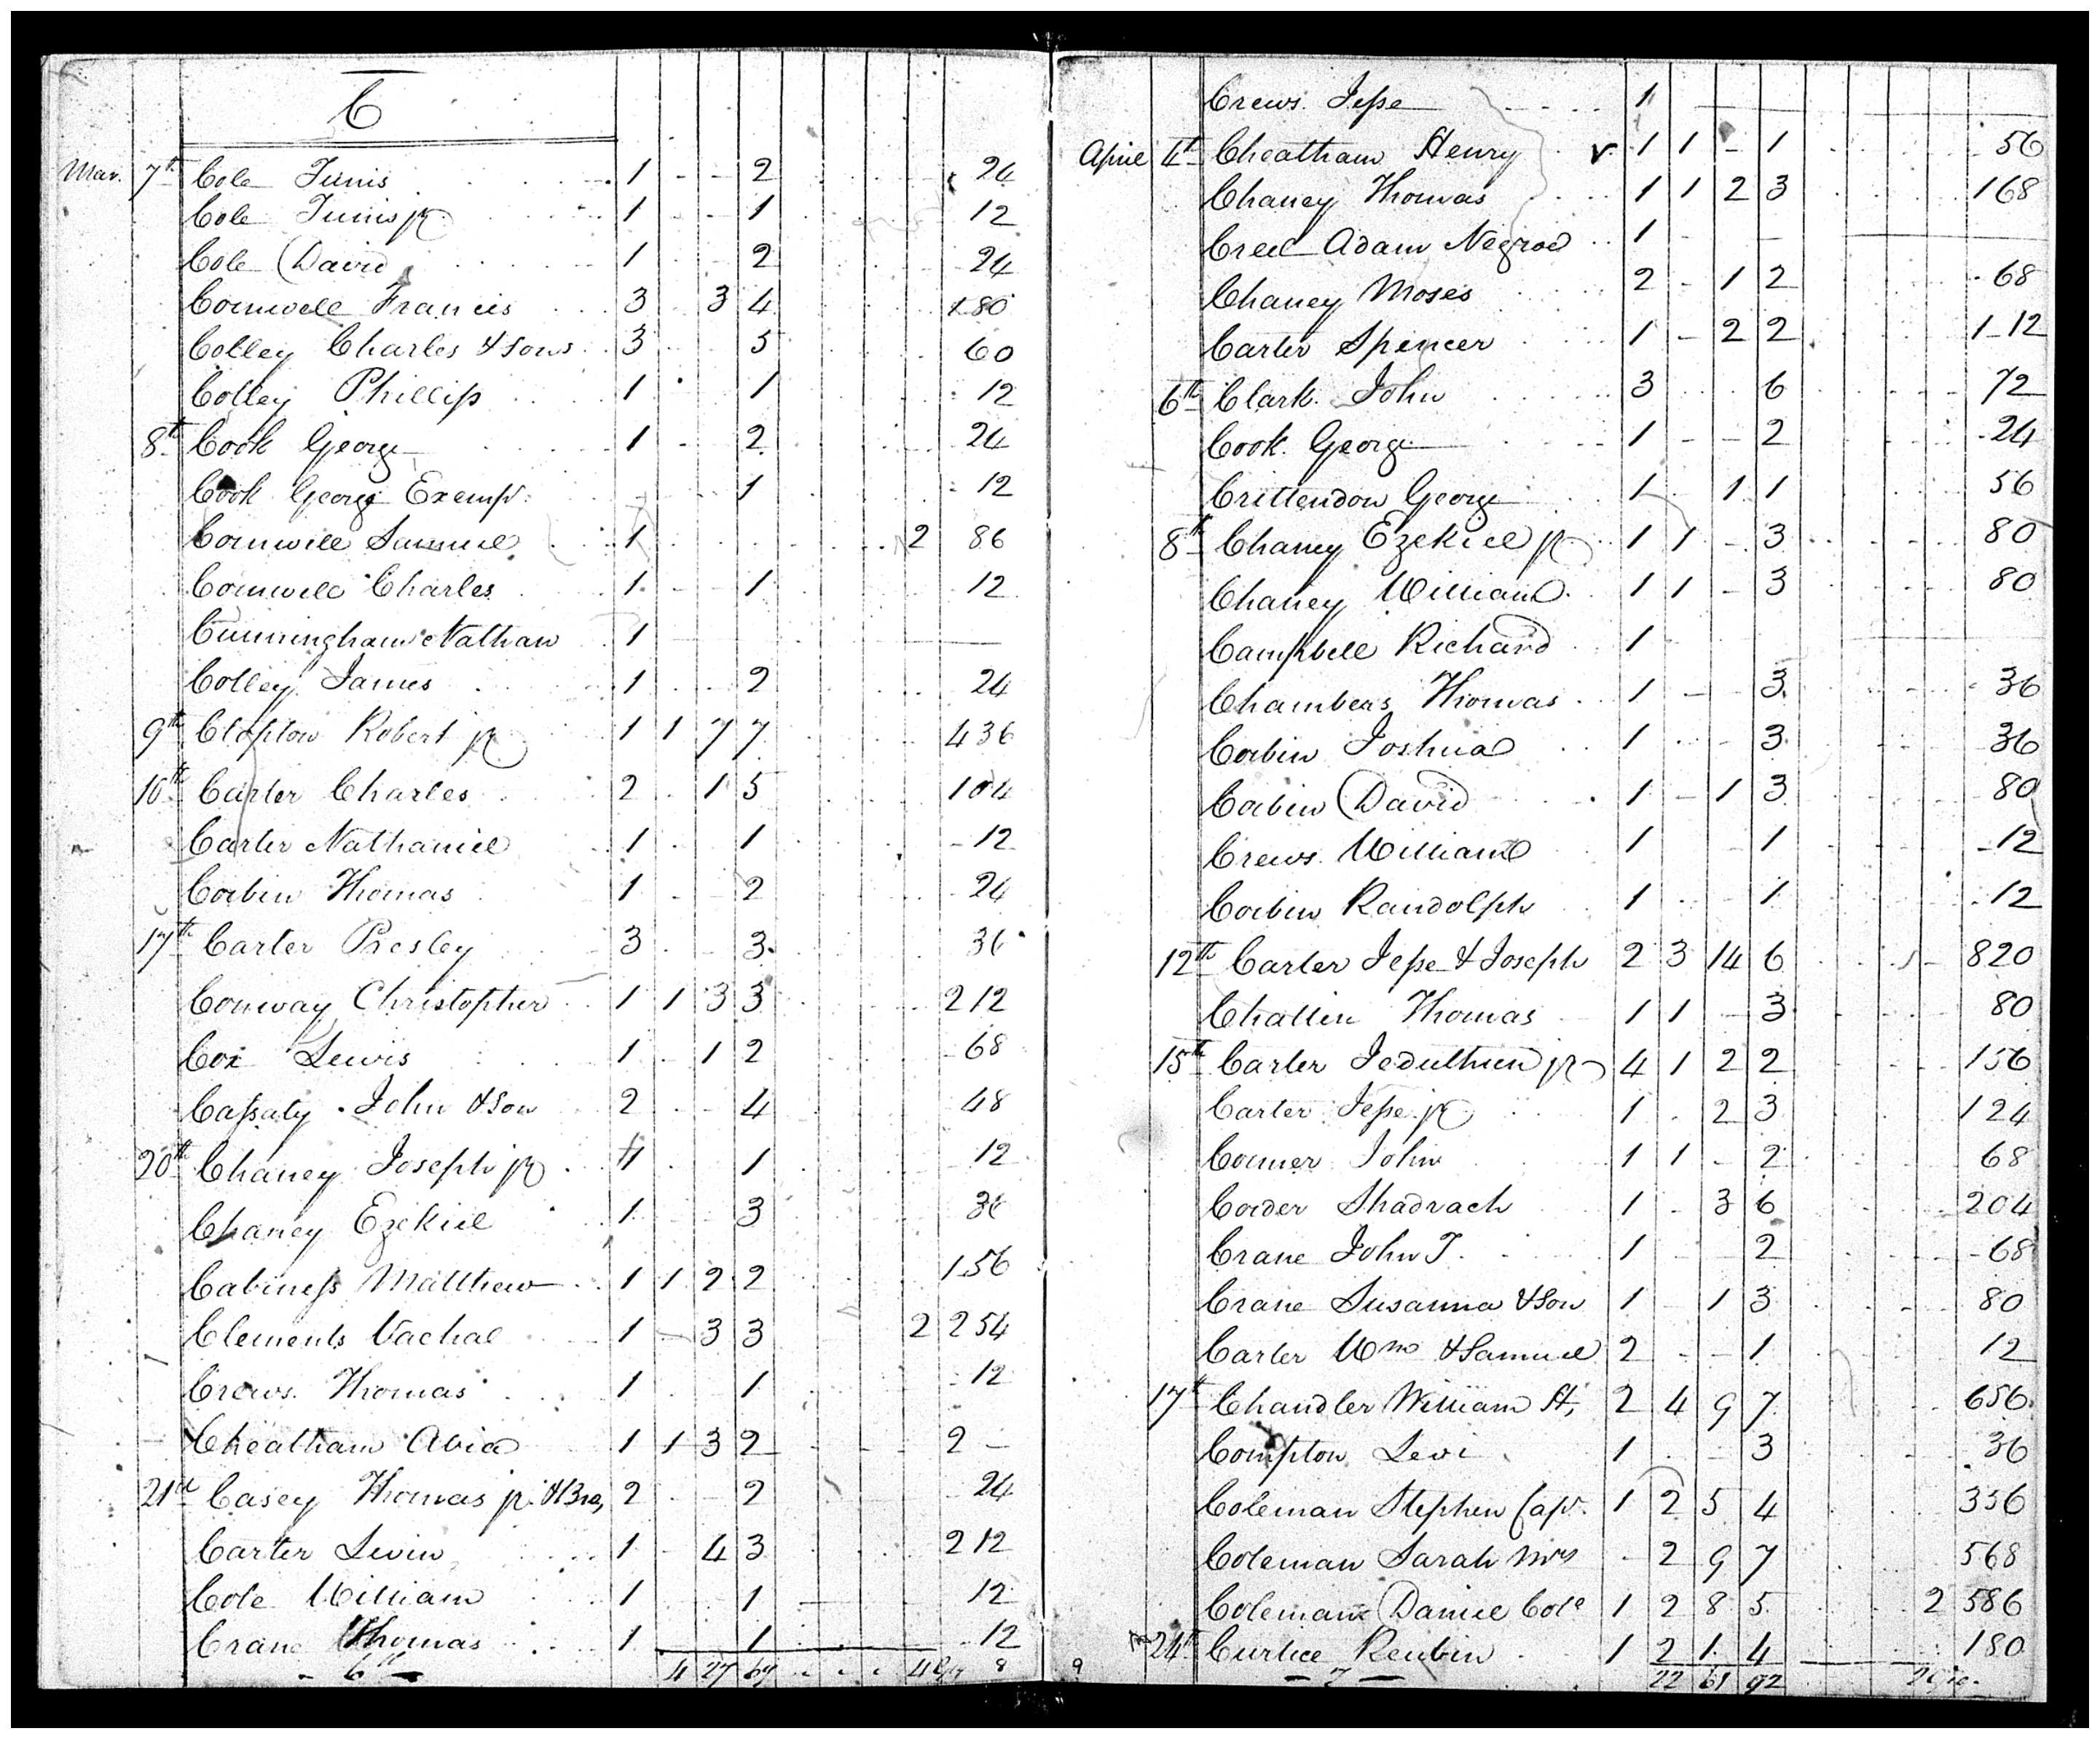 C
Mar. 7th Cole Tunis 1 2 24
Cole Tunis jr 1 1 12
Cole David 1 2 24
Cornwell Francis 3 3 4 180
Colley Charles & Sons 3 5 60
Colley Phillip 1 1 12
8th Cook George 1 2 24
Cook George Exempt. 1 12
Cornwell Samuel 1 2 86
Cornwell Charles 1 1 12
Cunningham Nathan 1
Colley James 1 2 24
9th Clopton Robert jr 1 1 7 7 436
10th Carter Charles 2 1 5 104
Carter Nathaniel 1 1 12
Corbin Thomas 1 2 24
17th Carter Presley 3 3 36
Conway Christopher 1 1 3 3 212
Cox Lewis 1 1 2 68
Cassaty John & Son 2 4 48
20th Chaney Joseph jr 1 12
Chaney Ezekiel 1 3 36
Cabiness Matthew 1 1 2 2 156
Clements Vachal 1 3 3 2 254
Crews Thomas 1 1 12
Cheatham Abia 1 1 3 2 2 –
21st Casey Thomas jr & Bro, 2 2 24
Carter Levin 1 4 3 212
Cole William 1 1 12
Crane Thomas 1 1 12
4 27 69 4 8
Crews Jesse 1
April 4th Cheatham Henry v 1 1 - 1 56
Chaney Thomas 1 1 2 3 168
Creel Adam Negroe 1
Chaney Moses 2 - 1 2 68
Carter Spencer 1 - 2 2 1-12
6th Clark John 3 6 72
Cook George 1 - - 2 24
Crittendon George 1 1 1 56
8th Chaney Ezekiel jr 1 1 - 3 80
Chaney William 1 1 - 3 80
Campbell Richard 1
Chambers Thomas 1 - 3 36
Corbin Joshua 1 - 3 36
Corbin David 1 - 1 3 80
Crews William 1 1 12
Corbin Randolph 1 1 12
12th Carter Jesse & Joseph 2 3 14 6 820
Challin Thomas 1 1 3 80
15th Carter Jeduthun jr 4 1 2 2 156
Carter Jesse jr 1 2 3 124
Conner John 1 1 - 2 68
Corder Shadrach 1 - 3 6 204
Crane John T. 1 2 68
Crane Susanna & Son 1 1 3 80
Carter Wm & Samuel 2 - - 1 12
17th Chandler William H, 2 4 9 7 656
Compton Levi 1 3 36
Coleman Stephen Capt. 1 2 5 4 336
Coleman Sarah Mrs - 2 9 7 568
Coleman Daniel Cole 1 2 8 5 2 586
24th Curtice Reubin 1 2 1 4 180
9 7 22 61 92